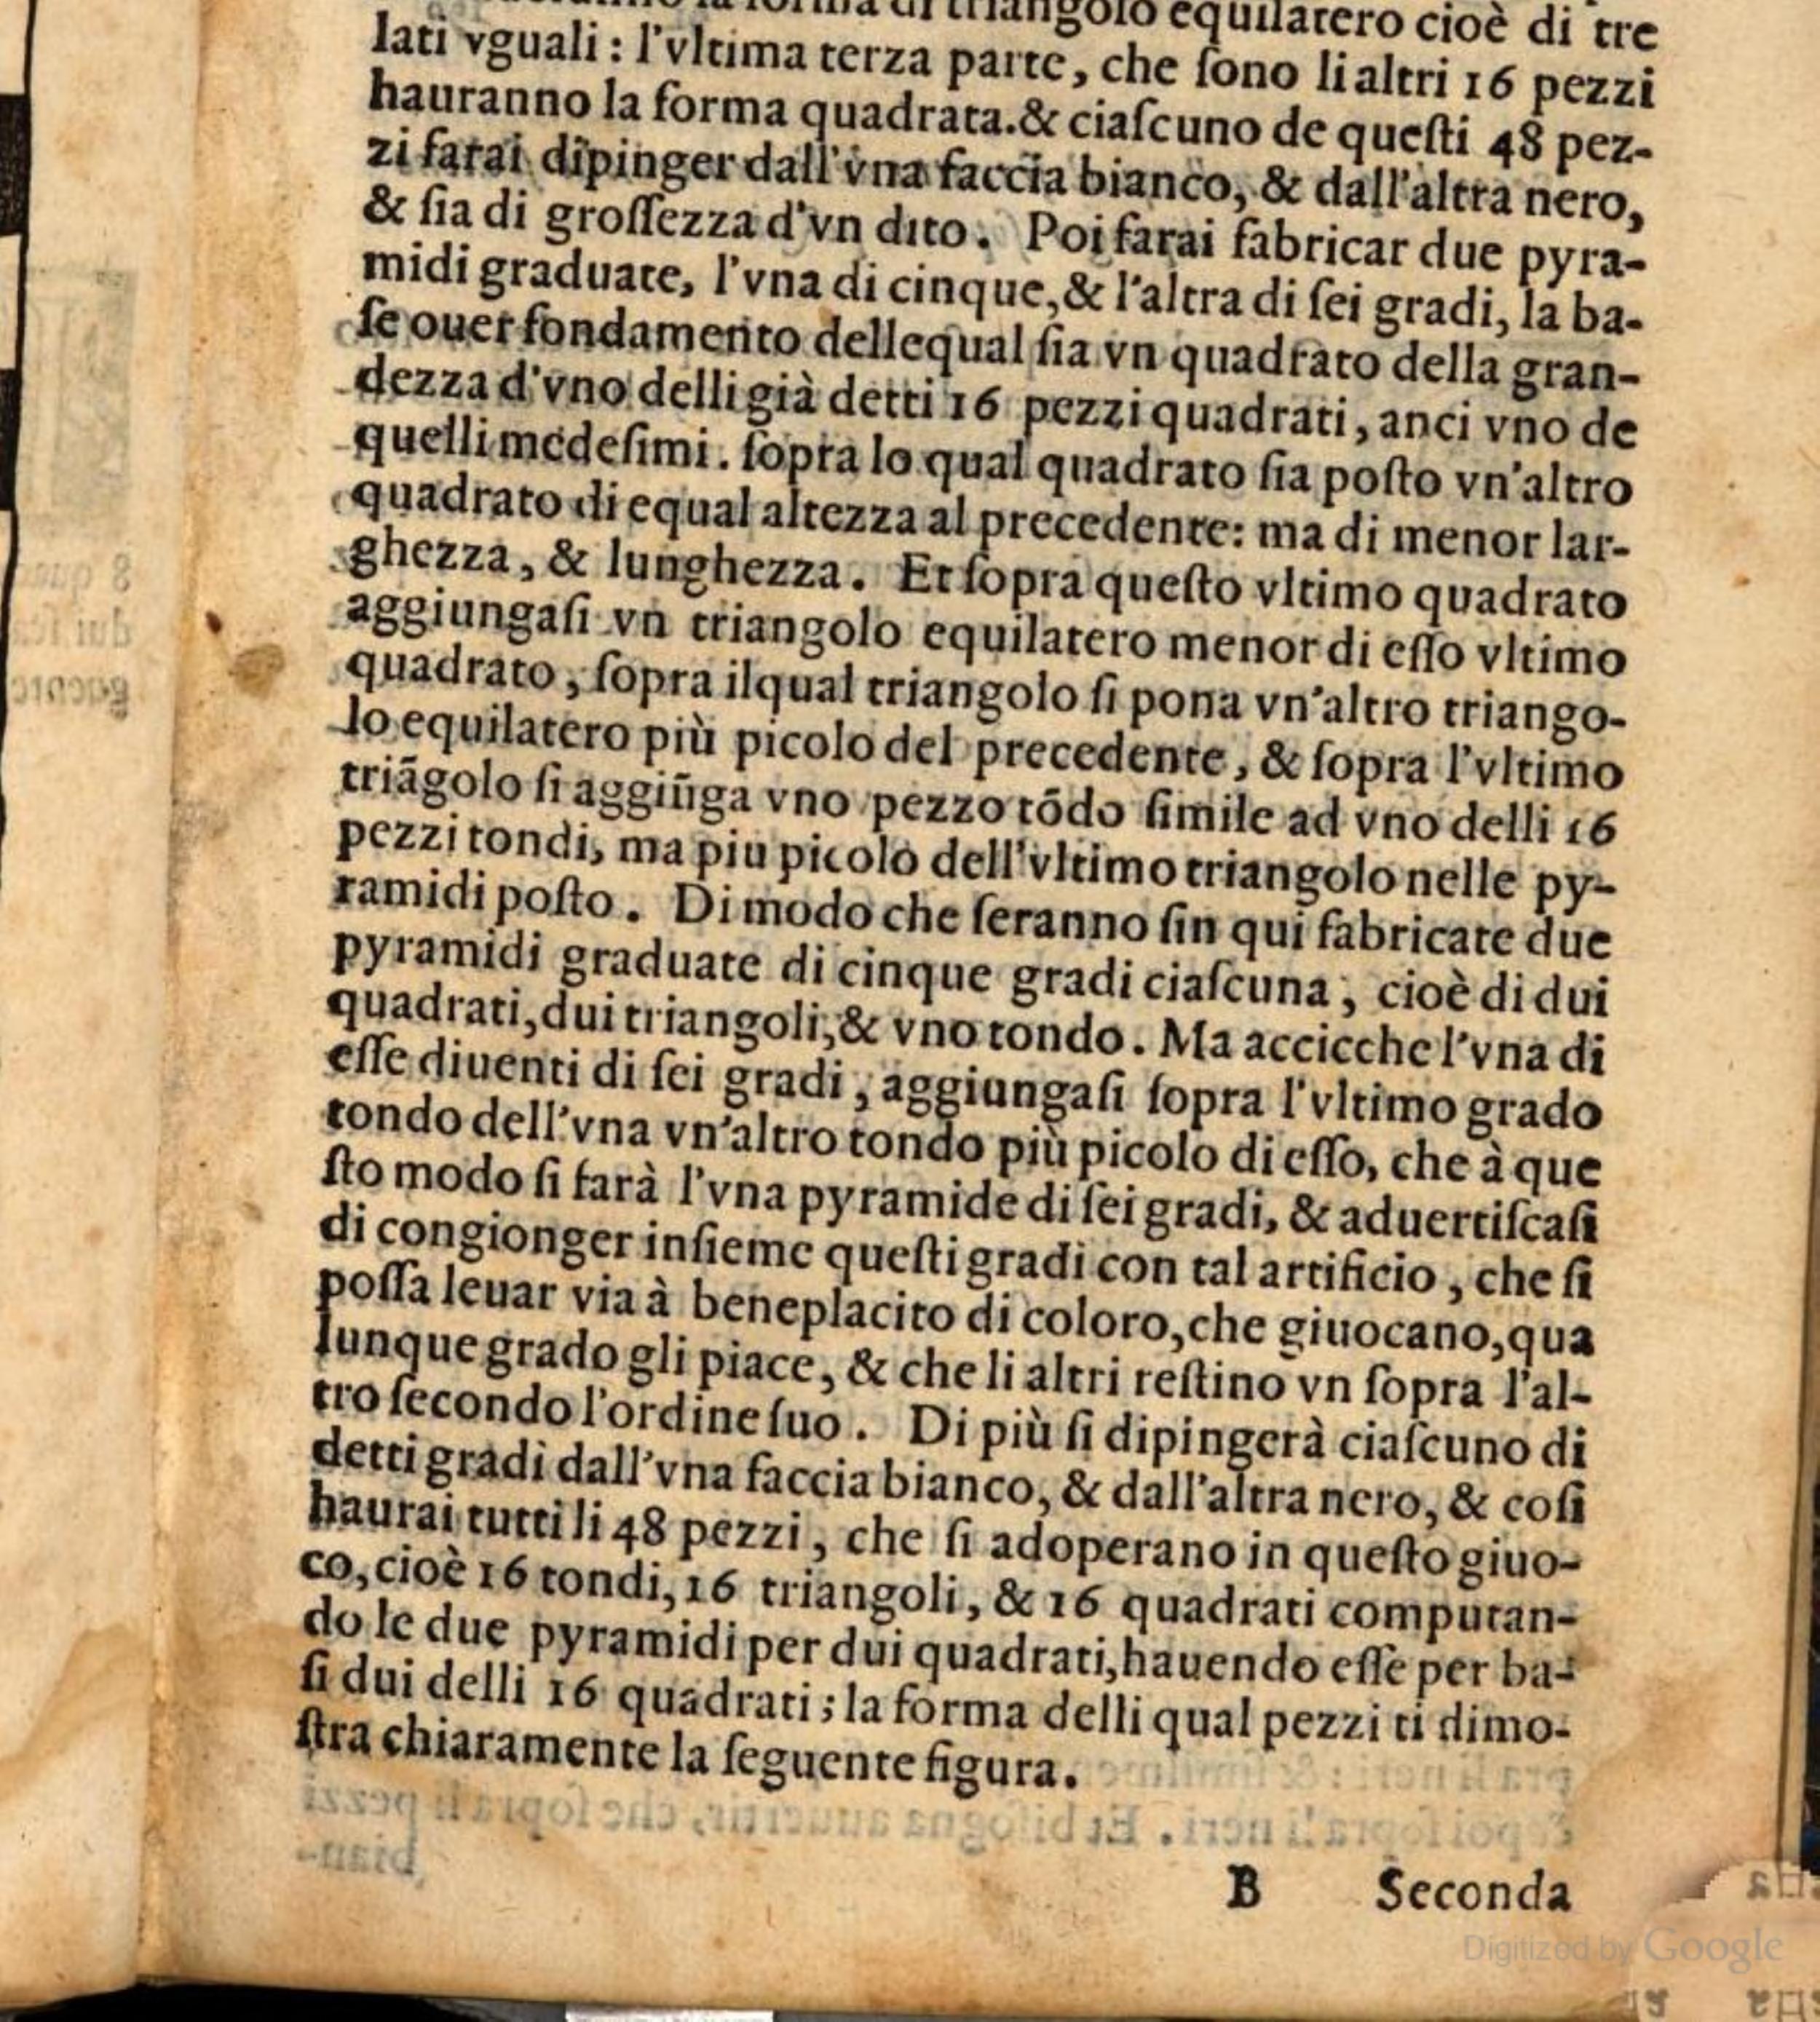 la forma di triangolo equilatero cioè di tre
lati vguali: l'vltima terza parte, che ſono li altri 16 pezzi
hauranno la forma quadrata.& ciaſcuno de queſti 48 pez-
zi farai dipinger dall'vna faccia bianco, & dall'altra nero,
& ſia di groſſezza d'vn dito. Poi farai fabricar due pyra-
midi graduate, l'vna di cinque,& l'altra di ſei gradi, la ba-
ſe ouer fondamento dellequal ſia vn quadrato della gran-
dezza d'vno delli già detti 16 pezzi quadrati, anci vno de
quelli medeſimi. ſopra lo qual quadrato ſia poſto vn'altro
quadrato di equal altezza al precedente: ma di menor lar-
ghezza, & lunghezza. Et ſopra queſto vltimo quadrato
aggiungaſi vn triangolo equilatero menor di eſſo vltimo
quadrato, ſopra ilqual triangolo ſi pona vn'altro triango-
lo equilatero più picolo del precedente, & ſopra l'vltimo
triãgolo ſi aggiũga vno pezzo tõdo ſimile ad vno delli 16
pezzi tondi, ma piu picolo dell'vltimo triangolo nelle py-
ramidi poſto. Di modo che ſeranno ſin qui fabricate due
pyramidi graduate di cinque gradi ciaſcuna, cioè di dui
quadrati,dui triangoli,& vno tondo. Ma accicche l'vna di
eſſe diuenti di ſei gradi, aggiungaſi ſopra l'vltimo grado
tondo dell'vna vn'altro tondo più picolo di eſſo, che à que
ſto modo ſi farà l'vna pyramide di ſei gradi, & aduertiſcaſi
di congionger inſieme queſti gradi con tal artificio, che ſi
poſſa leuar via à beneplacito di coloro,che giuocano,qua
lunque grado gli piace, & che li altri reſtino vn ſopra l'al-
tro ſecondo l'ordine ſuo. Di più ſi dipingerà ciaſcuno di
detti gradi dall'vna faccia bianco, & dall'altra nero, & coſi
haurai tutti li 48 pezzi, che ſi adoperano in queſto giuo-
co,cioè 16 tondi,16 triangoli, & 16 quadrati computan-
do le due pyramidi per dui quadrati,hauendo eſſe per ba-
ſi dui delli 16 quadrati; la forma delli qual pezzi ti dimo-
ſtra chiaramente la ſeguente figura.
B Seconda
Digitized by Google